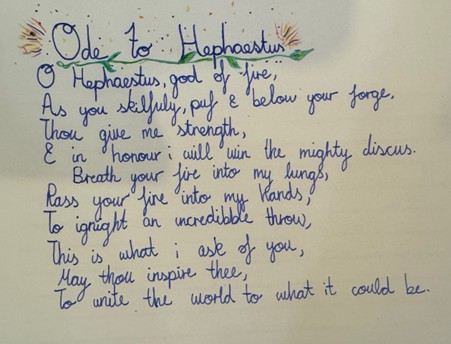 Ode to Hephaestus
O Hephaestus, god of fire,
As you skilfuly, puf & below your forge,
Thou give me strength,
& in honour i will win the mighty discus.
Breath your fire into my lungs,
Pass your fire into my hands,
To ignight an incredibble throw,
This is what i ask of you,
May thou inspire thee,
To unite the world to what it could be.